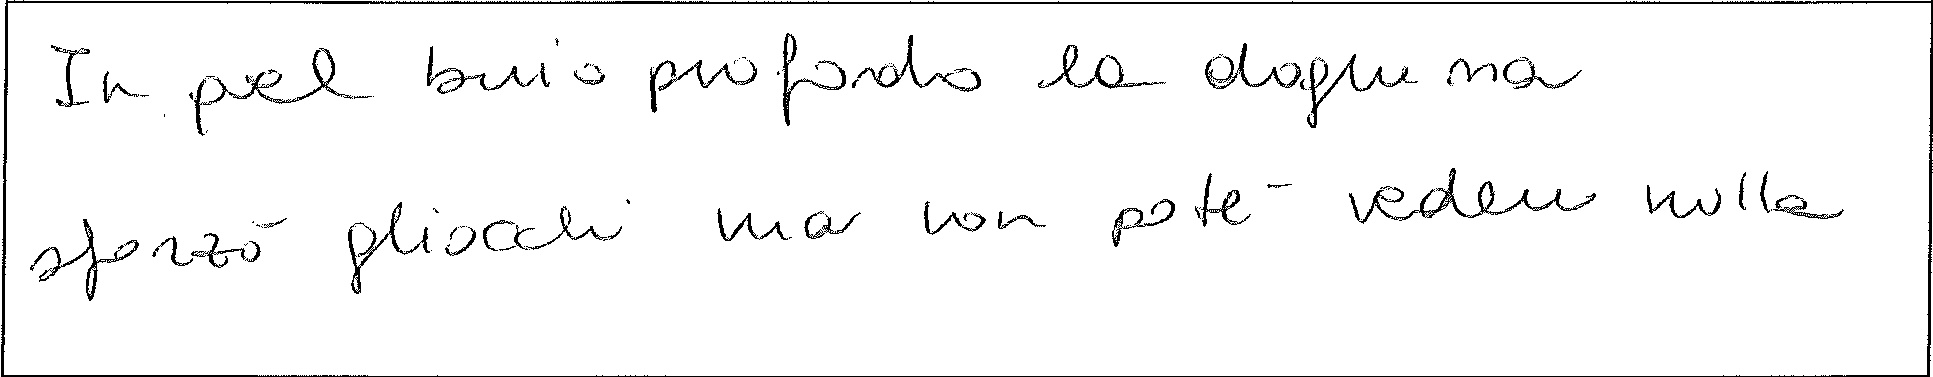 In quel buio profondo la
sforzò gliocchi ma non poté vedere nulla